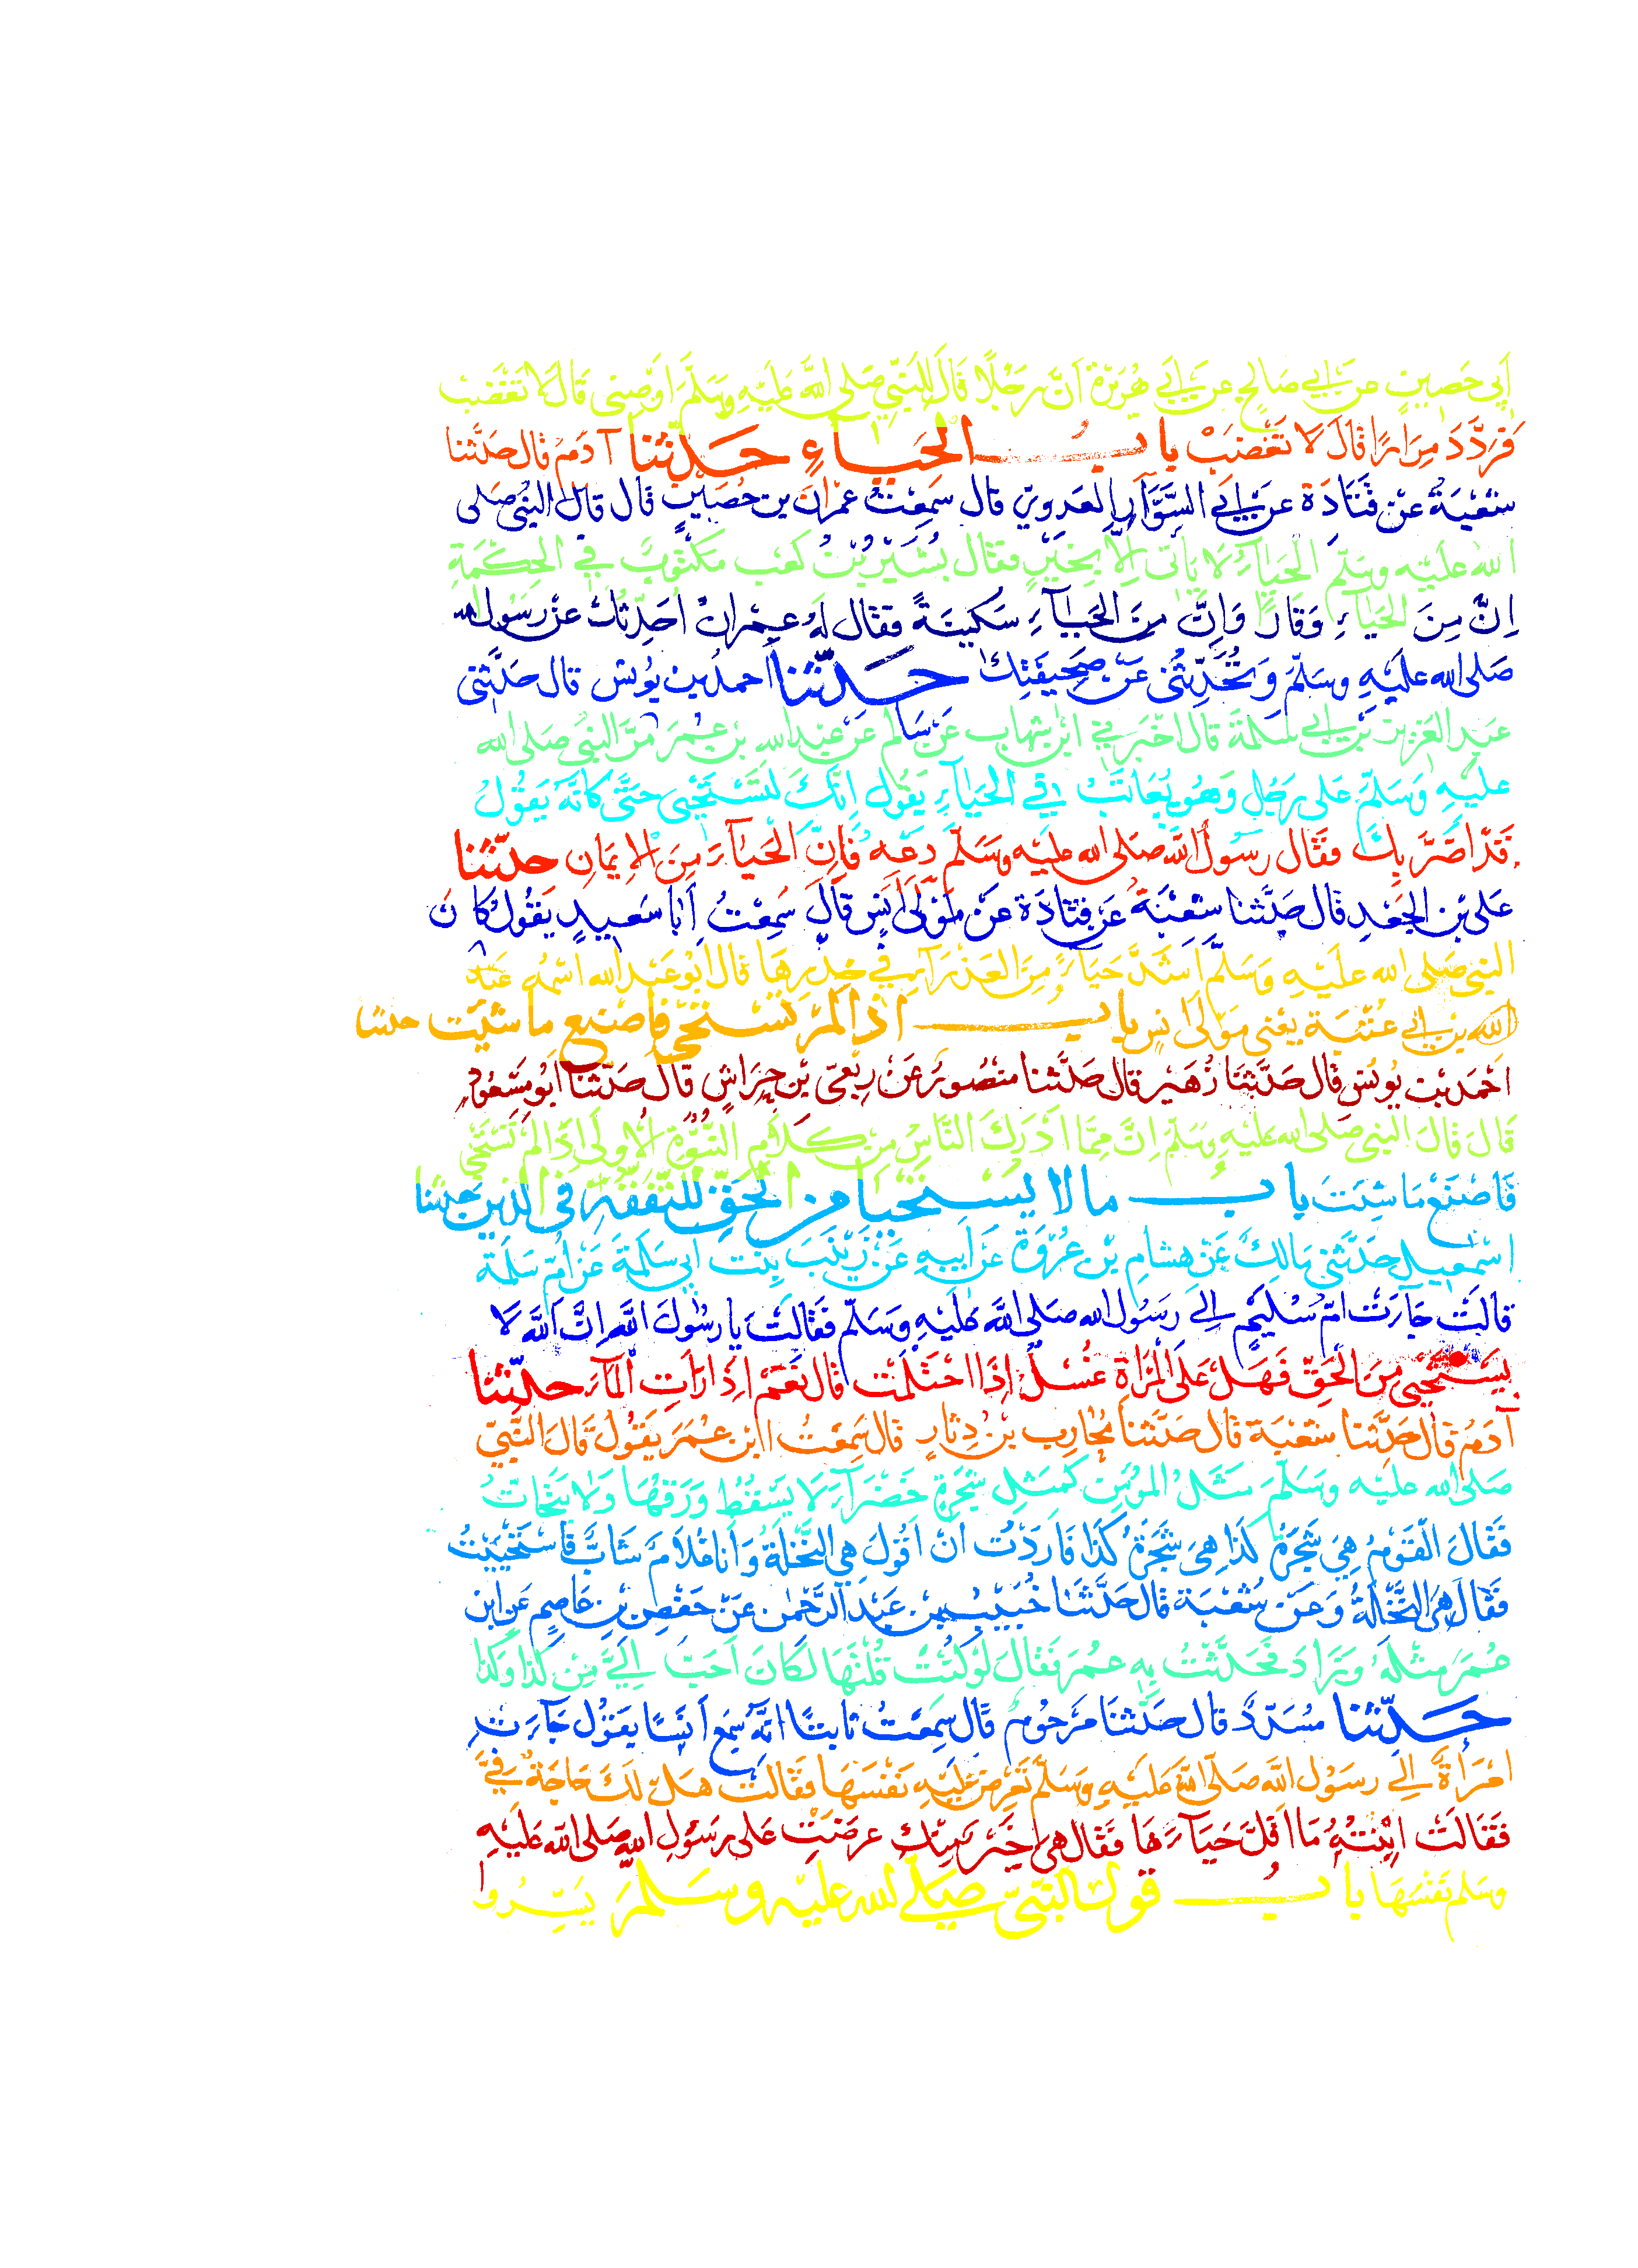 أَبِي حَصِينٍ عن أبي صَالِحٍ عن أبي هُرَيْرَةَ أَنَّ رَجُلًا قَالَ لِلنَّبِيِّ صَلى اللَّه عَلَيْهِ وَسَلَّمَ أَوْصِنِي قَالَ لَا تَغْضَبْ
فَرَدَّدَ مِرَارًا قَالَ لَا تَغْضَبْ باب الحَيَاءِ حَدَّثنا آدَمُ قال حَدَّثنا
شعْبَةُ عَنْ قَتَادَةَ عن أبي السَّوَّارِ العَدويّ قال سَمِعْتُ عِمْرَانَ بن حُصَيْنٍ قال قال النبيُ صَلى
الله عَلَيْه وسَلّم الحَيَآءُ لا يأتى إلَّا بِخَيْرٍ فقال بُشَيْرُ بْنُ كَعْب مَكْتُوبٌ في الحِكْمَةِ
إنَّ مِنَ الحَيَاءِ وَقَارًا وَإِنَّ مِنَ الحَيَآءِ سَكِينَةً فقال لَهُ عِمْرانُ أُحَدِّثُكَ عَنْ رَسُول الله
صَلى الله عليْهِ وسَلّمَ وَتُحَدِّثُنِي عَنْ صَحِيفَتِكَ حَدّثنا أحمدُ بن يُونس قال حَدَّثَنِي
عَبْد العَزِيز بْن أبي سَلَمَةَ قال أخْبَرَني ابْن شِهَاب عَنْ سَالم عَنْ عَبْد اللهِ بْن عُمَرَ مَرَّ النبيُّ صَلى الله
عليْهِ وَسَلّمَ عَلى رَجُلٍ وَهُو يُعَاتَبُ في الحَيَآءِ يَقُول إنَّكَ لَتَسْتَحْيِى حَتَّى كَأنَّهُ يَقُولُ
قَدْ أضَرَّ بِكَ فقَال رسُولُ اللَّه صَلى الله عليْه وَسَلَّمَ دَعْهُ فَإِنَّ الحَيَآءَ مِنَ الإيمَانِ حدّثنا
عَلى بْن الجَعْدِ قال حَدَّثنا شعْبَةُ عَنْ قَتَادَةَ عَنْ مَوْلَى أَنَسٍ قَالَ سَمِعْتُ أبَا سَعيدٍ يَقُولُ كَانَ
النبيّ صَلى الله عليْهِ وَسَلّمَ أشَدَّ حَيَآءً مِنَ العَذْرَآءِ في خِدْرِهَا قال أبُو عَبْد الله اسْمُه عَبْد
الله بْن أبي عُتْبَة يعْني مَوْلَى أنس باب إذا لَمْ تَسْتَحْيِ فاصْنَع ما شئت حدثنا
أحْمَد بْن يُونُس قال حَدَّثَنَا زُهَيْر قال حَدَّثنا منْصُور عَنْ رِبْعيّ بْن حِرَاشٍ قال حَدّثنا أبُو مَسْعُودٍ
قَالَ قَالَ النبي صَلى الله عليْهِ وسَلّمَ إنَّ مِمَّا أدْرَكَ النَّاسُ مِنْ كَلَامِ النُّبُوَّةِ الأولَى إذَا لَمْ تَسْتَحْيِ
فَاصْنَعْ مَا شِئتَ باب ما لا يُسْتحْيَا من الحَقِّ للتَّفَقُّهِ في الدّين حدثنا
إسْمعيل حَدَّثَنِي مَالِكٌ عَنْ هشامِ بْن عُرْوَةَ عَنْ أبِيهِ عَنْ زَيْنَبَ بِنْت أبي سَلَمَةَ عَنْ أمّ سَلَمَة
قالَتْ جَاءَتْ أمّ سُلَيْمٍ إلى رَسُول الله صَلى اللَّه عَلَيْهِ وَسَلّم فَقَالَتْ يا رسُولَ اللَّهِ إنَّ اللَّهَ لَا
يَسْتَحْيِي مِنَ الحَقِّ فَهَلْ عَلَى المَرْأةِ غُسْلٌ إذَا احْتَلَمَت قال نَعَمْ إذَا رَأتِ المَآءَ حدّثنا
آدَمُ قال حَدَّثَنا شعْبَة قال حَدّثنا مُحَارِب بْن دِثارٍ قال سَمِعْتُ ابن عُمَرَ يَقُولُ قَالَ النَّبيّ
صَلى الله عليْه وسَلَّمَ مَثَلُ المؤمِنِ كَمَثَلِ شَجَرَةٍ خَضْرَآءَ لا يَسْقُطُ وَرَقُهَا وَلَا يتَحَاتُّ
فَقَالَ القَوْمُ هِيَ شَجَرَةُ كَذَا هِيَ شَجَرَةُ كَذَا فَأرَدْتُ أنْ أقُولَ هِيَ النَّخْلَةُ وَأنا غُلامٌ شابٌّ فَاسْتَحْيَيْتُ
فَقَالَ هِيَ النَّخْلَةُ وَعَنْ شُعْبَة قال حَدَّثَنا خُبَيْب بن عَبْد الرَّحْمن عَنْ حَفْص بْن عَاصِمٍ عَنِ ابْن
عُمَرَ مثْلَهُ وَزَادَ فَحَدَّثْتُ بِهِ عُمَرَ فَقَالَ لَوْ كُنْتَ قُلْتَهَا لَكَانَ أحَبَّ إلَيَّ مِنْ كَذَا وَكَذَا
حَدّثنا مُسَدَّدٌ قال حَدّثنَا مَرْحُومٌ قَال سَمِعْتُ ثابتًا أنَّهُ سَمِعَ أنَسًا يَقُولُ جَآءَتِ
امْرَأةٌ إلى رسُول اللَّه صَلّى اللَّه عَلَيْهِ وَسَلّمَ تَعْرِضُ عَلَيْهِ نَفْسَهَا فقَالَتْ هَلْ لَكَ حَاجَةٌ فِيَّ
فَقَالَتْ ابْنَتُهُ مَا أقَلَّ حَيَآءَهَا فَقَال هيَ خَيْرٌ مِنْكِ عرضَتْ عَلى رسُولِ الله صَلى الله عَلَيْهِ
وسَلم نَفْسَهَا باب قول النبيّ صلى الله عليه وسلمَ يَسِّرُوا